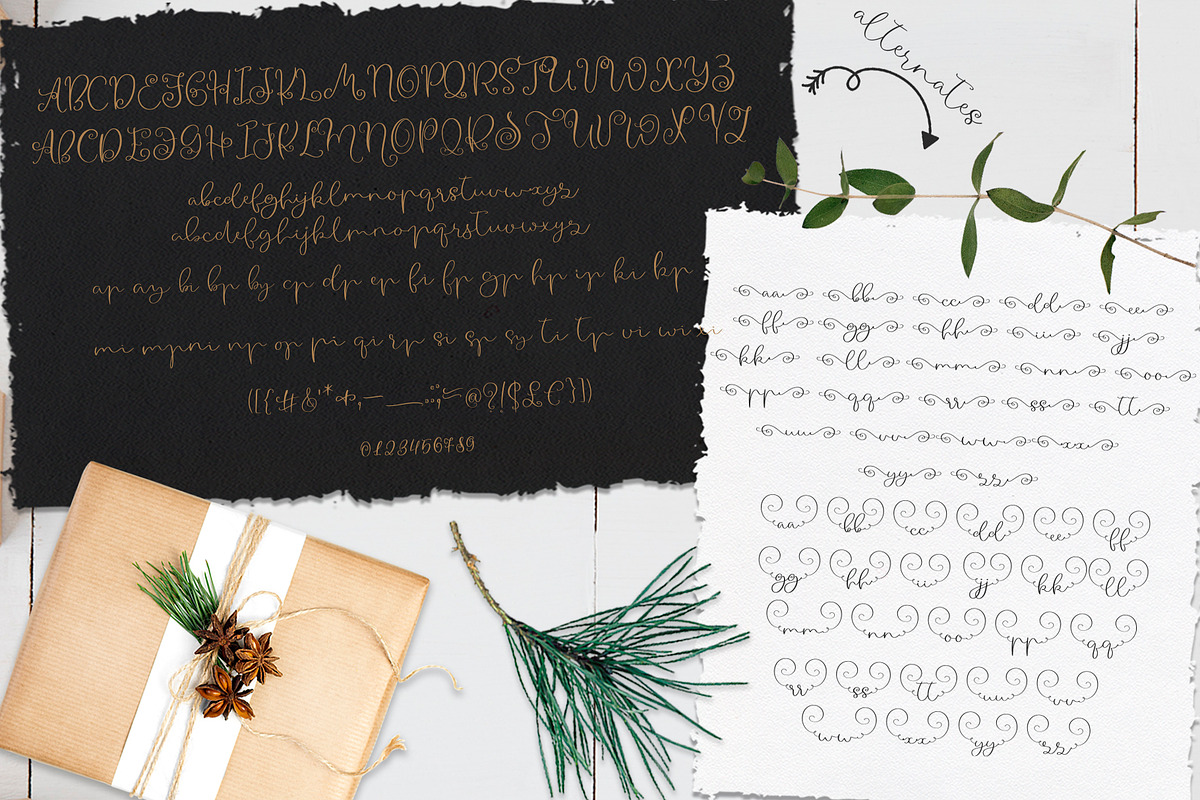 ABCDEFGHIJKLMNOPQRSTUVWXYZ
ABCDEFGHIJKLMNOPQRSTUVWXYZ
abcdefghijklmnopqrstuvwxyz
abcdefghijklmnopqrstuvwxyz
ap ay bi bp by cp dp ep fi fp gp hp ip ki kp
mi mp ni np op pi qi rp si sp sy ti tp vi wi xi
0123456789
alternates
aa bb cc dd ee
ff gg hh ii jj
kk ll mm nn oo
pp qq rr ss tt
uu vv ww xx
yy zz
aa bb cc dd ee ff
gg hh ii jj kk ll
mm nn oo pp qq
rr ss tt uu vv
ww xx yy zz